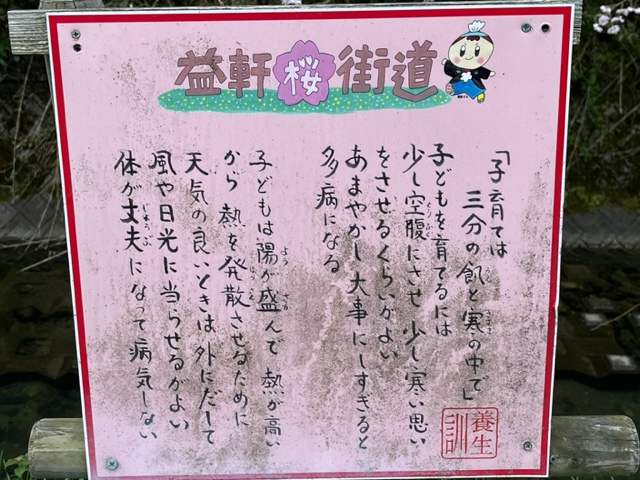 益軒桜街道
「子育ては
三分の飢と寒の中で」
子どもを育てるには
少し空腹にさせ 少し寒い思い
をさせるくらいがよい
あまやかし 大事にしすぎると
多病になる
子どもは陽が盛んで 熱が高い
から 熱を発散させるために
天気の良いときは 外にだして
風や日光に当らせるがよい
体が丈夫になって 病気しない
養生訓